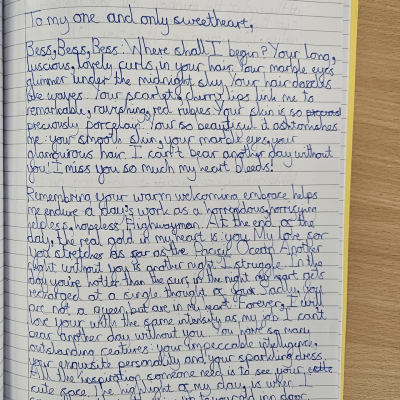 To my one and only sweetheart,
Bess, Bess, Bess. Where shall I begin? Your long,
luscious, lovely curls, in your hair. Your marble eyes
glimmer under the midnight sky. Your hair dances
like waves. Your scarlet, cherry lips link me to
remarkable, ravishing, red rubies. Your skin is so
preciously porcelain. Your so beautiful it ashtonishes
me: your smooth skin, your marble eyes, your
glamourous hair. I can't bear another day without
you! I miss you so much my heart bleeds!
Remembring your warm welcoming embrace helps
me endure a day's work as a horrendous, horrifying
helpless, hopeless Highwayman. At the end of the
day, the real gold in my heart is you. My love for
you stretches as far as the Pacific Ocean. Another
night without you is another night I struggle. In the
day you're hotter than the sun, in the night my heart gets
recharged at a single thought of you. Sadly, you
are not a queen, but are in my heart. Forever, I will
love your with the same intensity as my job. I can't
bear another day without you. You have so many
outstanding creatures: your impeccable intelligence,
your exquisite personality and your sparkling dress.
All the inspiration someone need is to see your
cute face. The highlight of my day, is when I
up to your old inn door